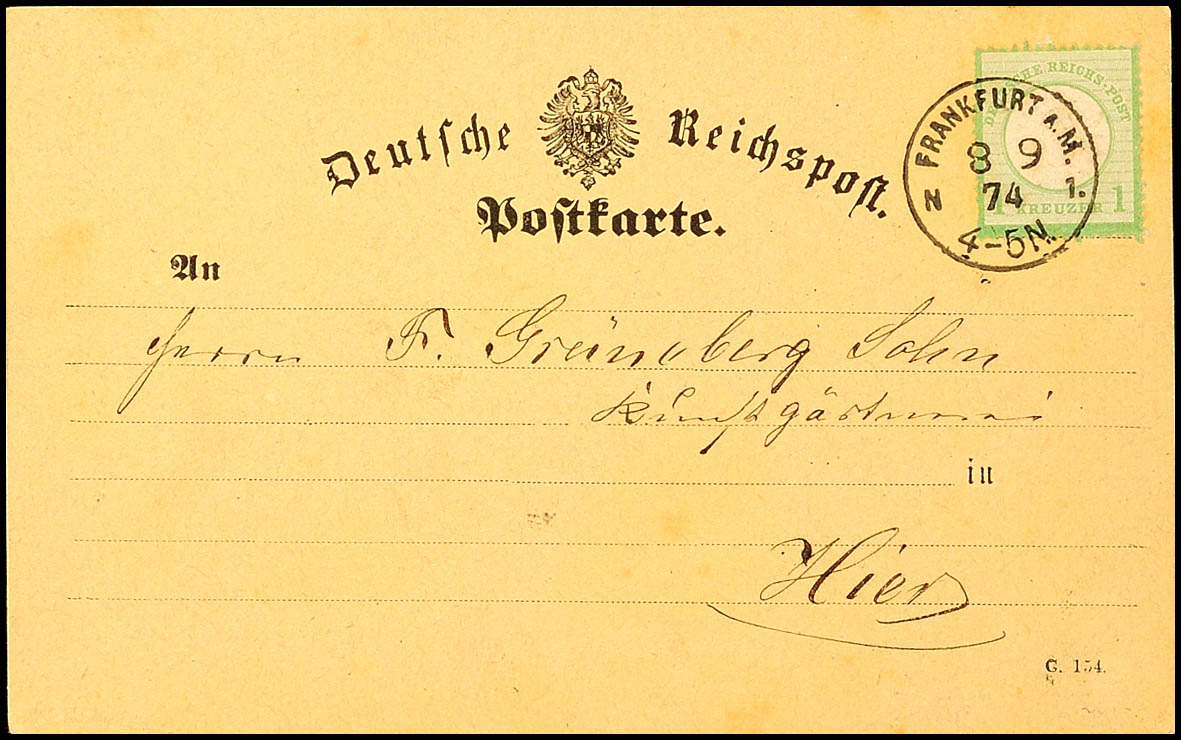 Deutsche Reichspost.
Postkarte.
DEUTSCHE REICHS-POST
1 KREUZER 1
FRANKFURT a. M.
8 9
74
N 1.
4-5N.
An
Herrn F. Grüneberg Sohn
Kunstgärtnerei
in
Hier
G. 154.